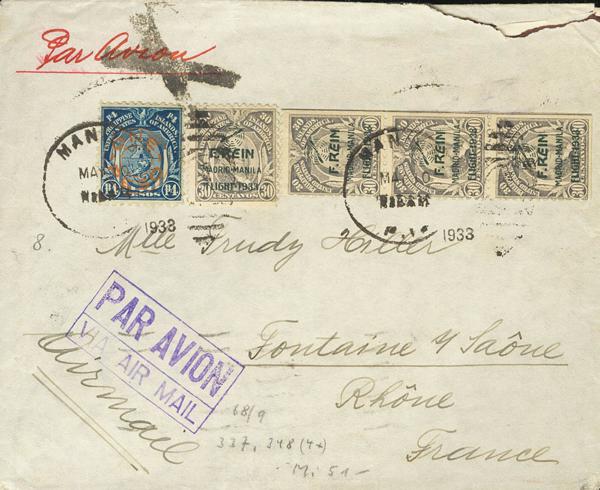 Par Avion
P4 P4
PHILIPPINE ISLANDS
UNITED STATES OF AMERICA
P4 PESOS P4
F. REIN
MADRID-MANILA
FLIGHT-1933
30 CENTAVOS 30
F. REIN
MADRID-MANILA
FLIGHT-1933
F. REIN
MADRID-MANILA
FLIGHT-1933
F. REIN
MADRID-MANILA
FLIGHT-1933
MAN
MAY
1933
MAN
MA
1933
8.
Mlle Trudy Hiller
PAR AVION
VIA AIR MAIL
Airmail
Fontaine s/ Saône
Rhône
France
68/9
337, 348 (4x)
M. 51-